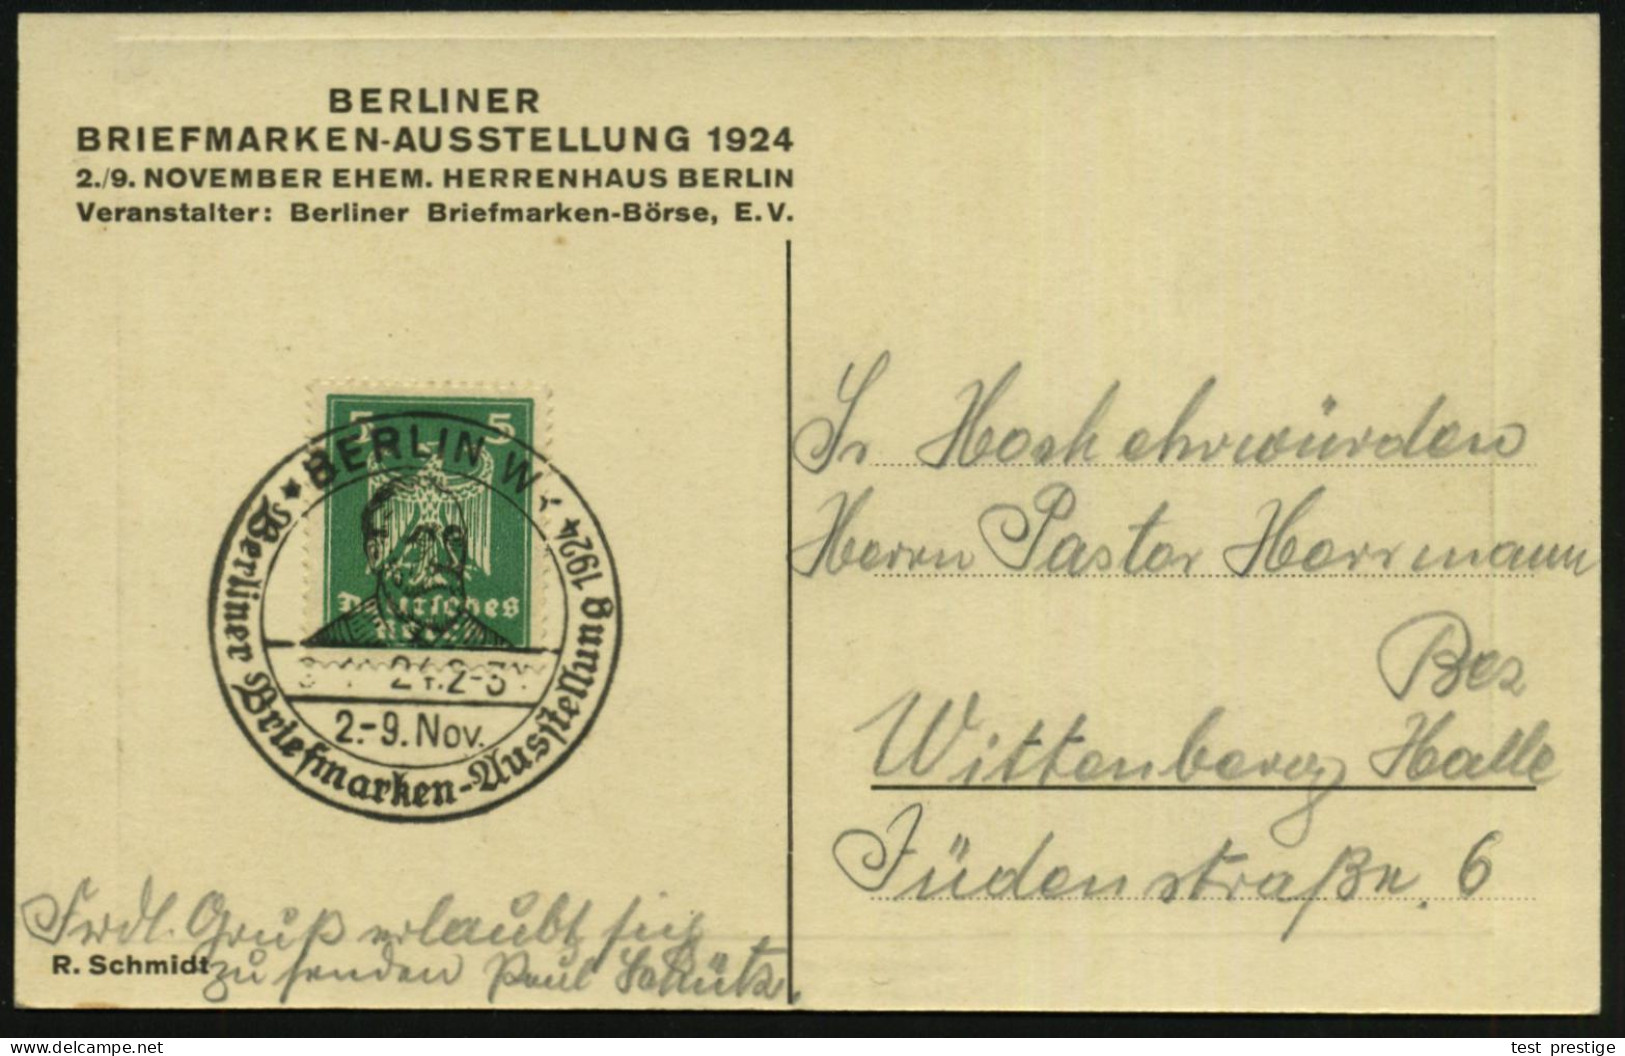 BERLINER
BRIEFMARKEN-AUSSTELLUNG 1924
2./9. NOVEMBER EHEM. HERRENHAUS BERLIN
Veranstalter: Berliner Briefmarken-Börse, E.V.
5 5
Deutsches
BERLIN W
24.2-3
2.-9. Nov.
Berliner Briefmarken-Ausstellung 1924
Sr Hochehrwürden
Herrn Pastor Herrmann
Bez
Wittenberg Halle
Jüdenstraße. 6
Frdl. Gruß erlaubt sich
R. Schmidt
zu senden Paul Schütz.
test prestige